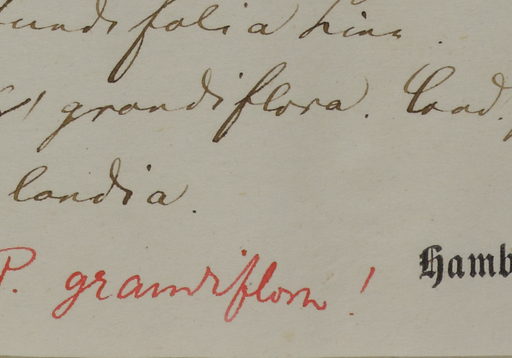 undifolia Linn.
grandiflora. Cand.
landia.
P. grandiflora!
Hamb